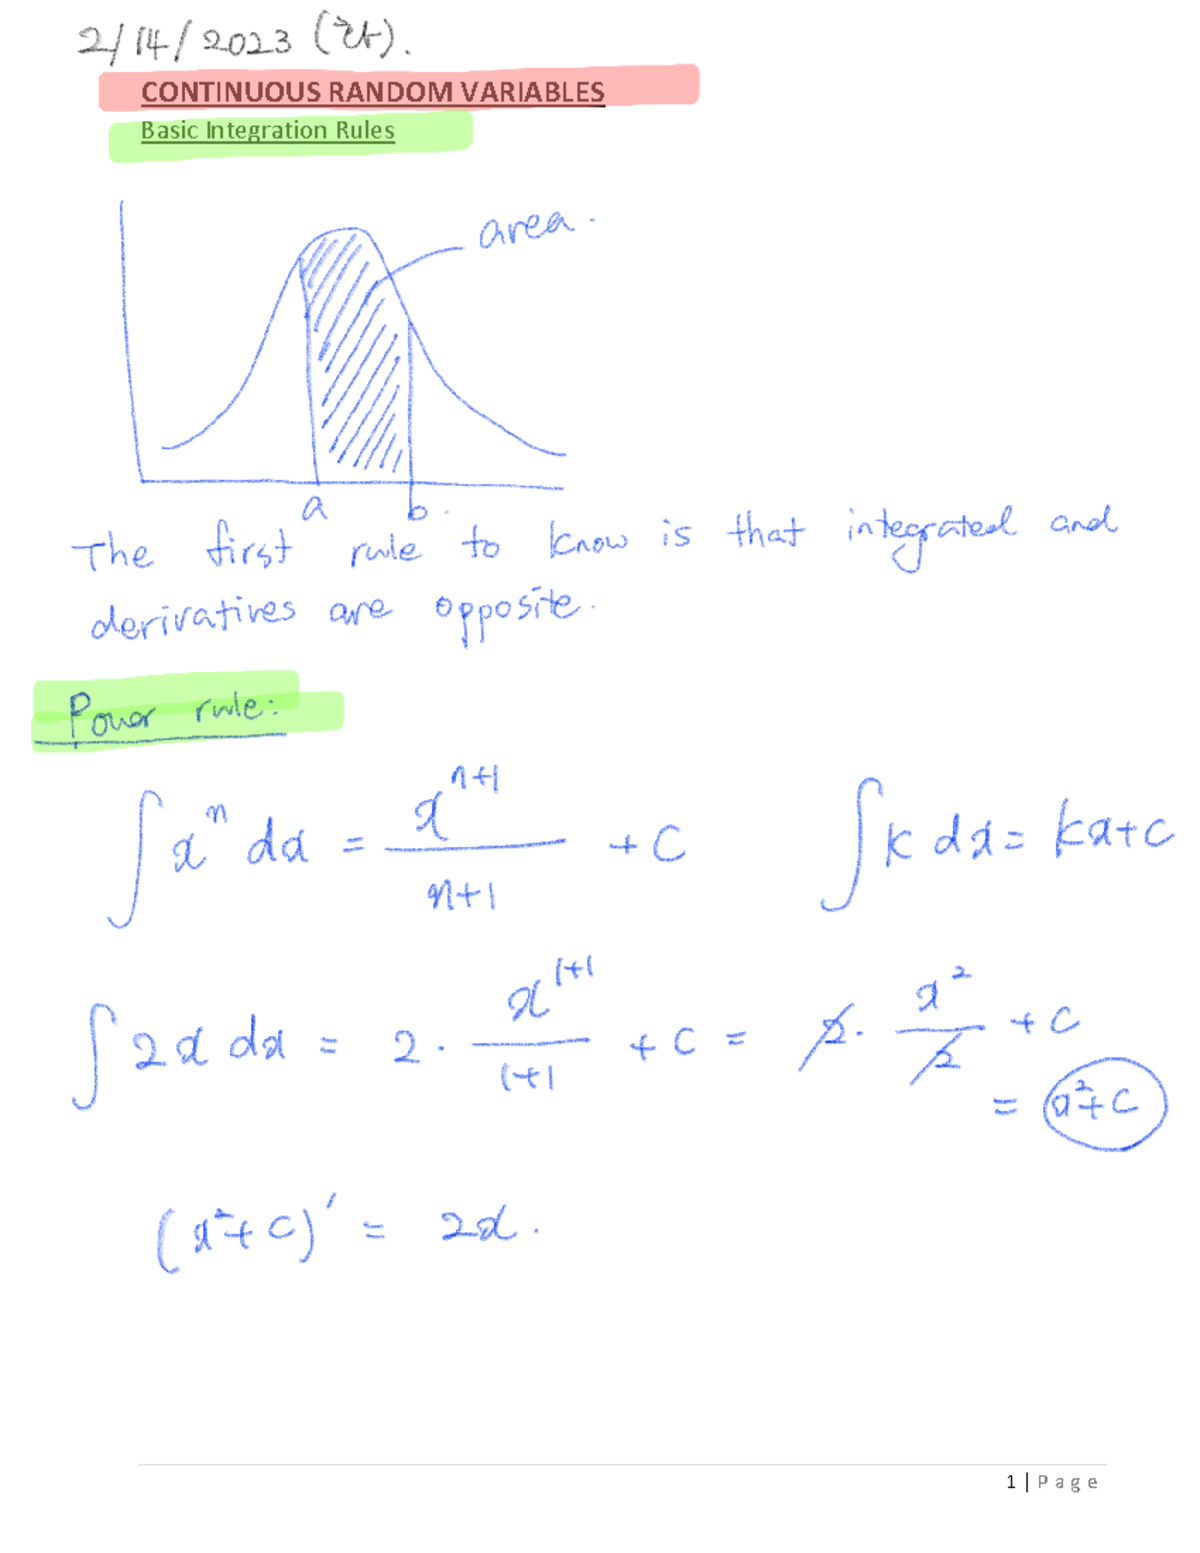 2/14/2023 (화).
CONTINUOUS RANDOM VARIABLES
Basic Integration Rules
area.
a b.
The first rule to know is that integrated and
derivatives are opposite.
Power rule:
∫xⁿ dx = xⁿ⁺¹/(n+1) + C ∫k dx = kx+c
∫2x dx = 2 · x¹⁺¹/(1+1) + C = 2 · x²/2 + C
= x²+C
(x²+C)′ = 2x.
1 | Page